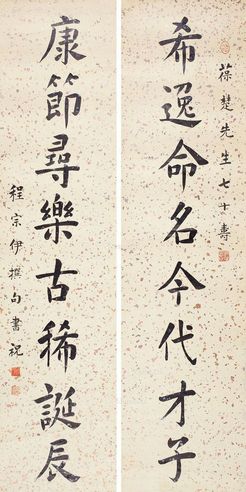 葆楚先生七十壽
希逸命名今代才子
康節尋樂古稀誕辰
程宗伊撰句書祝